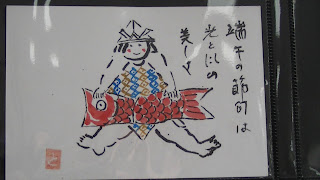 端午の節句は
光と
の
美しさ